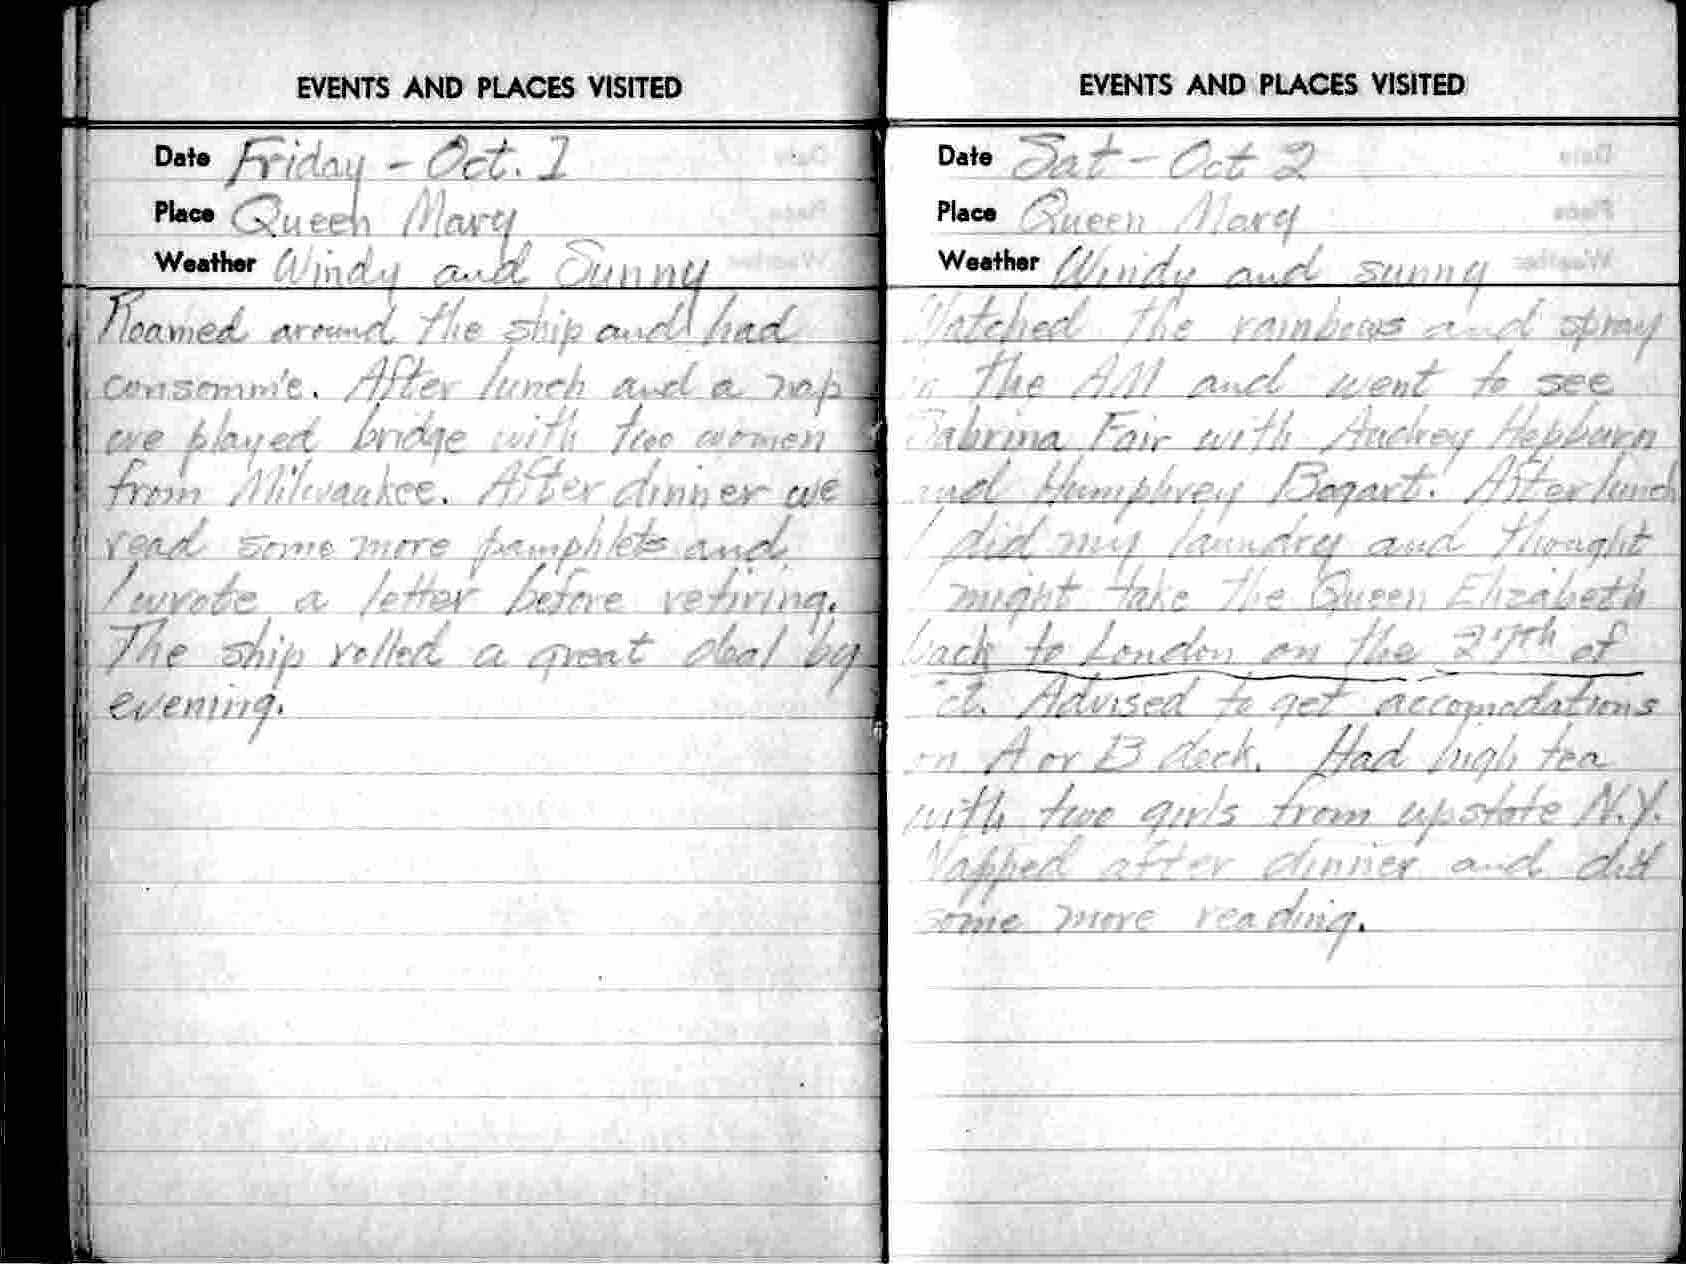 EVENTS AND PLACES VISITED
Date Friday - Oct. 1
Place Queen Mary
Weather Windy and Sunny
Roamed around the ship and had
consomm'e. After lunch and a nap
we played bridge with two women
from Milwaukee. After dinner we
read some more pamphlets and
I wrote a letter before retiring.
The ship rolled a great deal by
evening.
EVENTS AND PLACES VISITED
Date Sat - Oct 2
Place Queen Mary
Weather Windy and sunny
Watched the rainbows and spray
in the AM and went to see
Sabrina Fair with Audrey Hepburn
and Humphrey Bogart. After lunch
I did my laundry and thought
I might take the Queen Elizabeth
back to London on the 27th of
Oct. Advised to get accomodations
on A or B deck. Had high tea
with two girls from upstate N.Y.
Napped after dinner and did
some more reading.